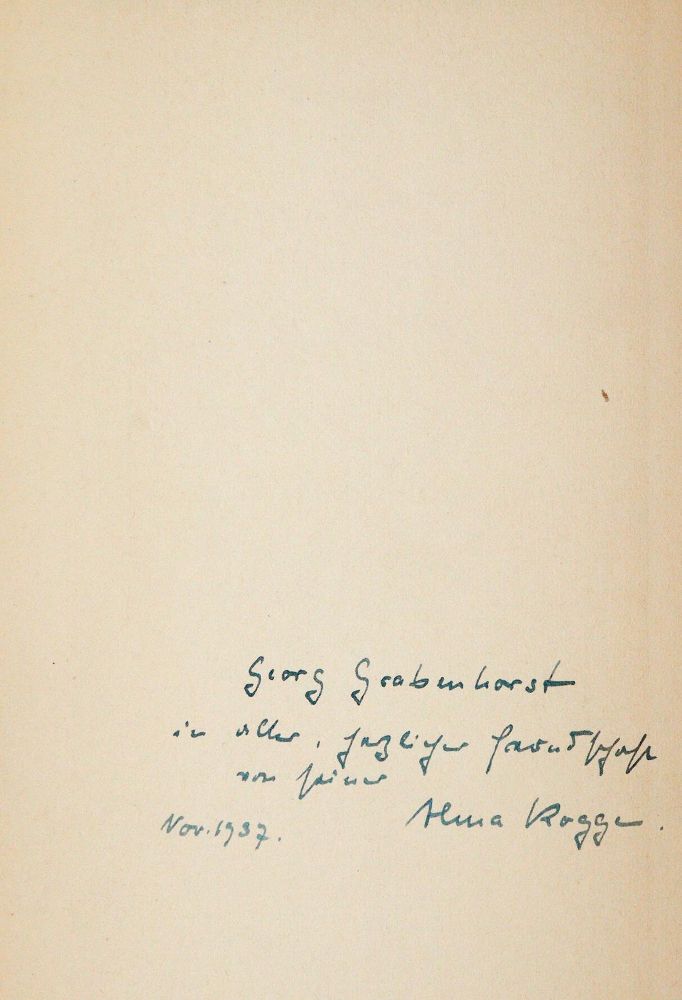 Georg Grabenhorst
in alter, herzlicher Freundschaft
von seiner
Alma Rogge.
Nov. 1937.